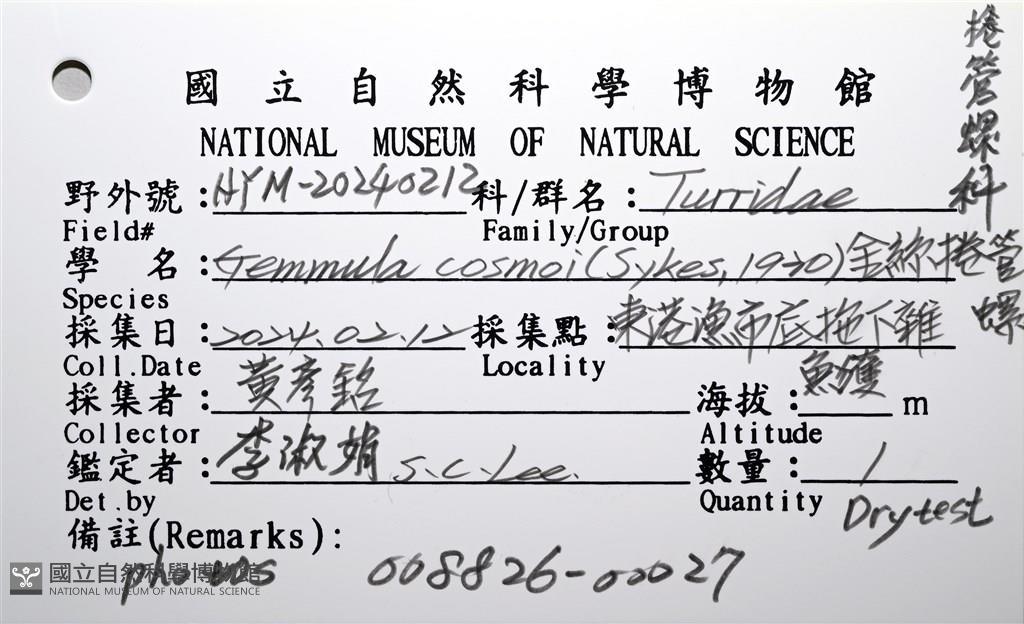 國立自然科學博物館
NATIONAL MUSEUM OF NATURAL SCIENCE
野外號：HYM-20240212 科/群名：Turridae 捲管螺科
Field# Family/Group
學名：Gemmula cosmoi (Sykes, 1930) 金絲捲管螺
Species
採集日：2024.02.12 採集點：東港漁市底拖下雜魚獲
Coll.Date Locality
採集者：黃彥銘 海拔： m
Collector Altitude
鑑定者：李淑娟 S.C.Lee. 數量：1
Det.by Quantity Dry test
備註(Remarks)：
photos 008826-00027
國立自然科學博物館
NATIONAL MUSEUM OF NATURAL SCIENCE